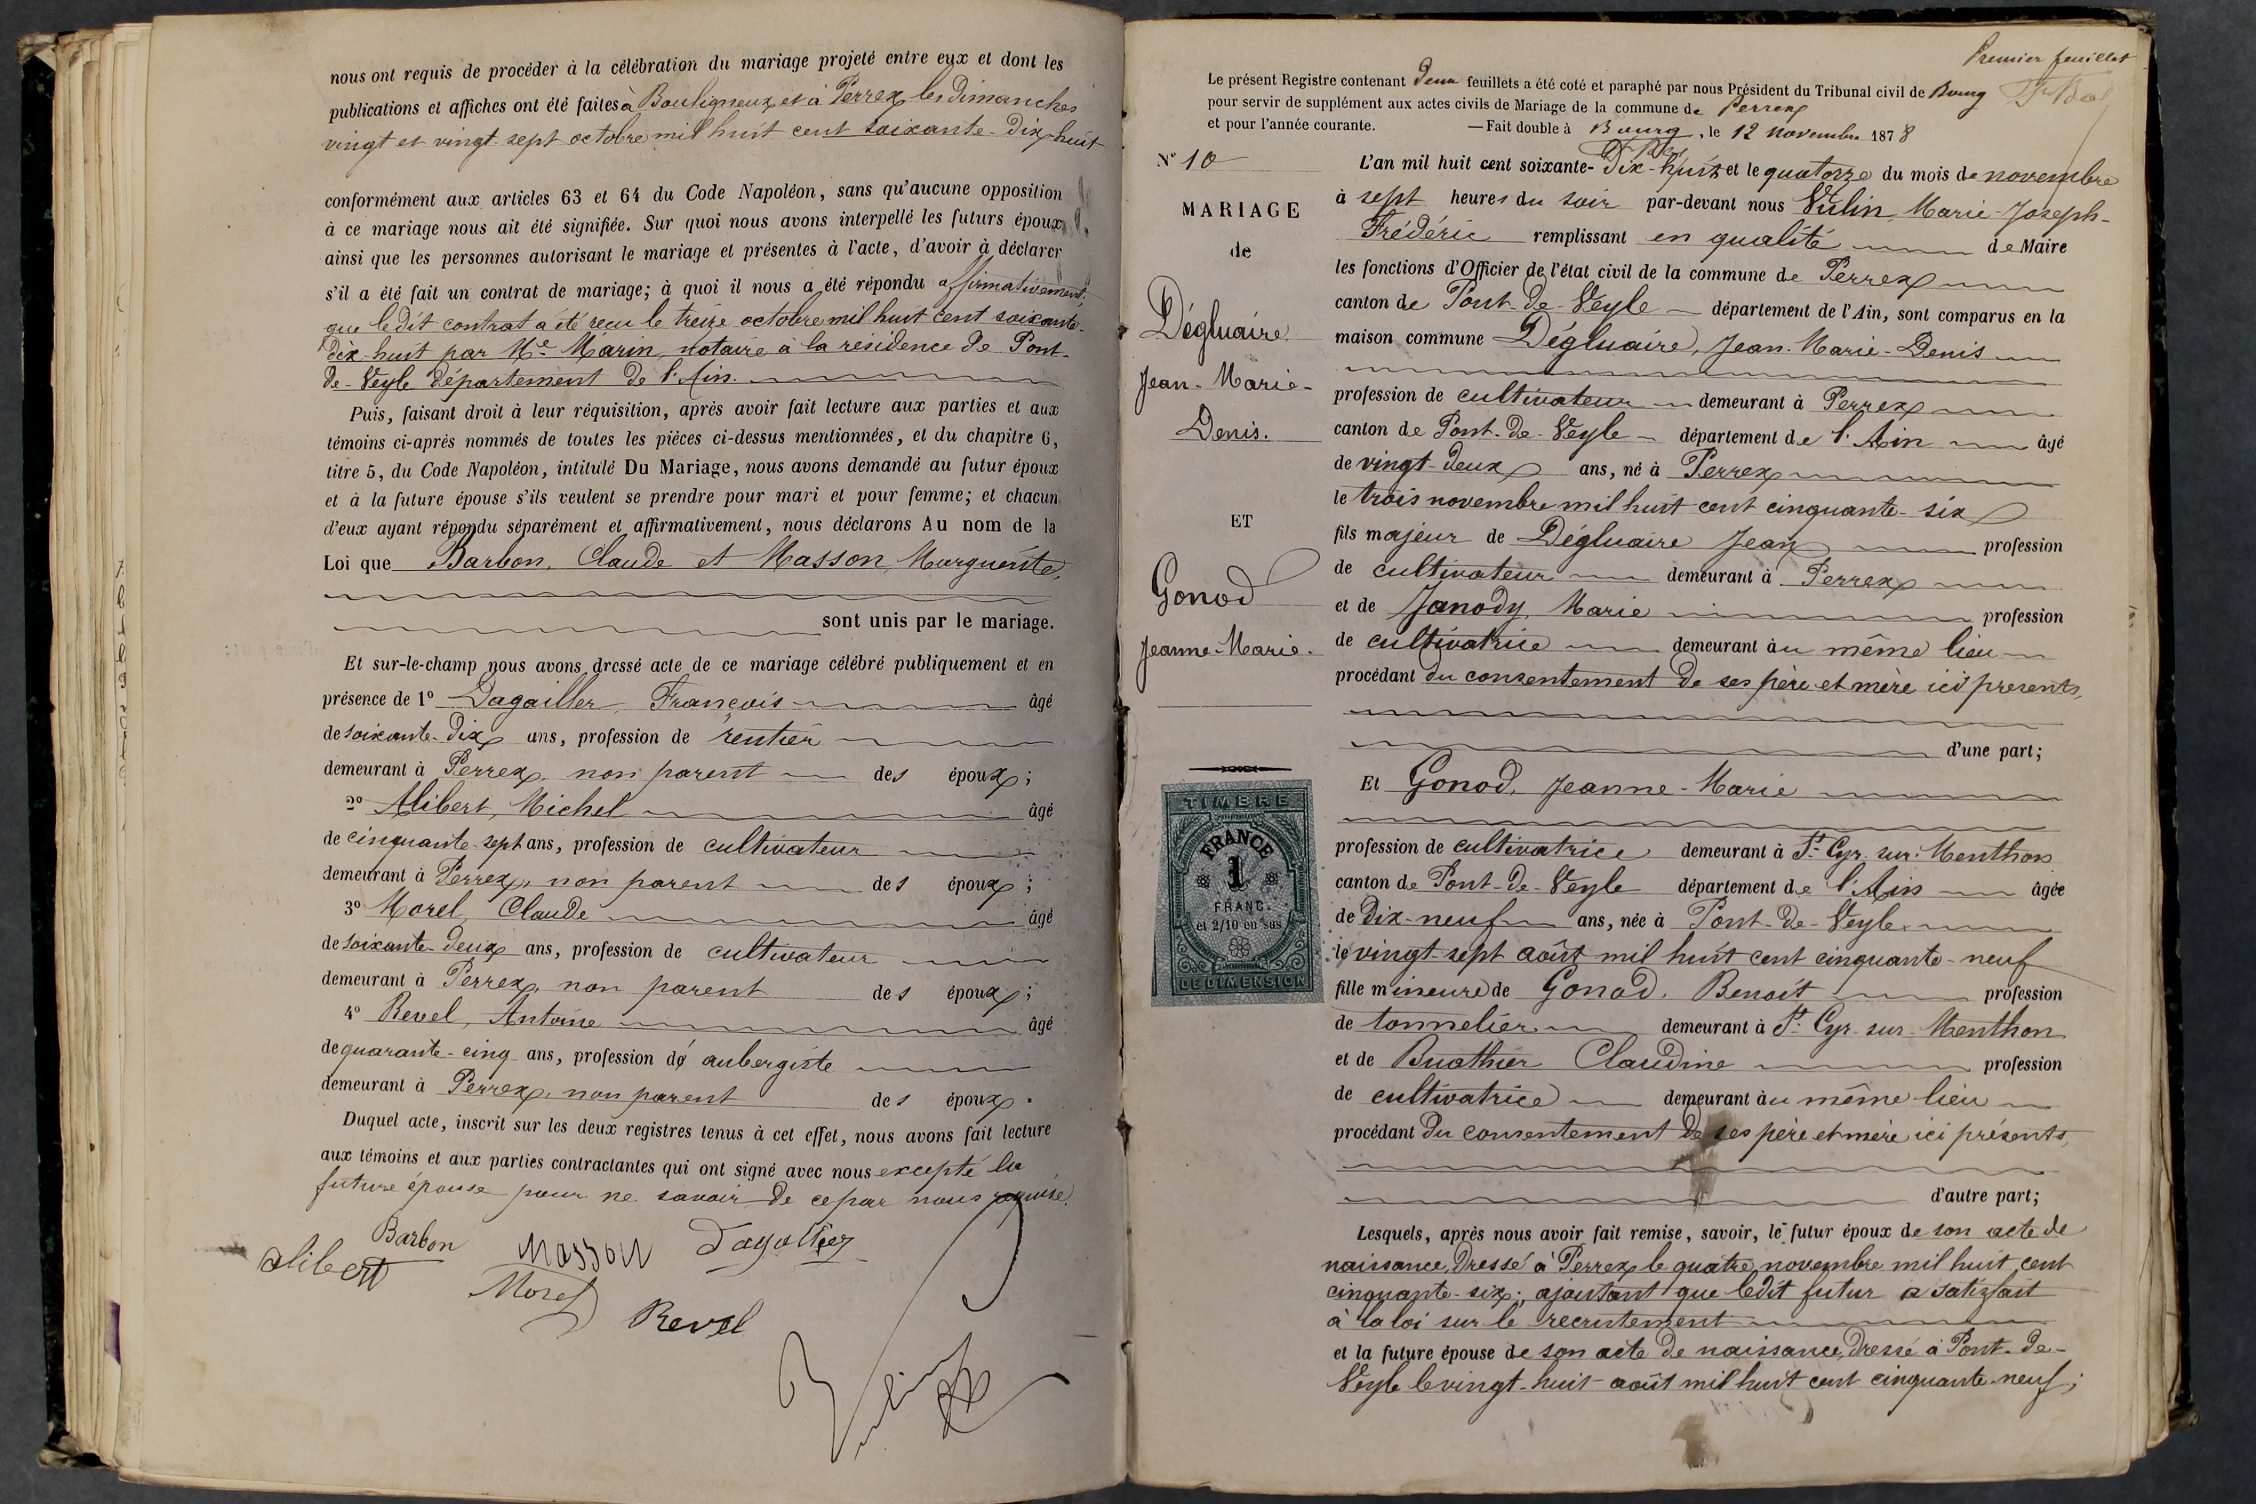 nous ont requis de procéder à la célébration du mariage projeté entre eux et dont les
publications et affiches ont été faites à Bouligneux et à Perrex les Dimanches
vingt et vingt-sept octobre mil huit cent soixante-dix-huit
conformément aux articles 63 et 64 du Code Napoléon, sans qu'aucune opposition
à ce mariage nous ait été signifiée. Sur quoi nous avons interpellé les futurs époux
ainsi que les personnes autorisant le mariage et présentes à l'acte, d'avoir à déclarer
s'il a été fait un contrat de mariage; à quoi il nous a été répondu affirmativement,
que le dit contrat a été reçu le treize octobre mil huit cent soixante-
dix-huit par Me Marin, notaire à la résidence de Pont-
de-Veyle département de l'Ain.
Puis, faisant droit à leur réquisition, après avoir fait lecture aux parties et aux
témoins ci-après nommés de toutes les pièces ci-dessus mentionnées, et du chapitre 6,
titre 5, du Code Napoléon, intitulé Du Mariage, nous avons demandé au futur époux
et à la future épouse s'ils veulent se prendre pour mari et pour femme; et chacun
d'eux ayant répondu séparément et affirmativement, nous déclarons Au nom de la
Loi que Barbon, Claude et Masson, Marguerite,
sont unis par le mariage.
Et sur-le-champ nous avons dressé acte de ce mariage célébré publiquement et en
présence de 1º Dagailler, François âgé
de soixante-dix ans, profession de rentier
demeurant à Perrex, non parent des époux;
2º Alibert, Michel âgé
de cinquante-sept ans, profession de cultivateur
demeurant à Perrex, non parent des époux;
3º Morel, Claude âgé
de soixante-deux ans, profession de cultivateur
demeurant à Perrex, non parent des époux;
4º Revel, Antoine âgé
de quarante-cinq ans, profession d' aubergiste
demeurant à Perrex, non parent des époux.
Duquel acte, inscrit sur les deux registres tenus à cet effet, nous avons fait lecture
aux témoins et aux parties contractantes qui ont signé avec nous excepté la
future épouse pour ne savoir de ce par nous requise.
Barbon Masson Dagallier
alibert Morel
Revel
Vulin
Premier feuillet
Le présent Registre contenant deux feuillets a été coté et paraphé par nous Président du Tribunal civil de Bourg
pour servir de supplément aux actes civils de Mariage de la commune de Perrex
et pour l'année courante. — Fait double à Bourg, le 12 novembre 1878
Nº 10
MARIAGE
de
Dégluaire
Jean-Marie-
Denis.
ET
Gonod
Jeanne-Marie.
TIMBRE
FRANCE
1
FRANC.
et 2/10 en sus
DE DIMENSION
L'an mil huit cent soixante-Dix-huit et le quatorze du mois de novembre
à sept heures du soir par-devant nous Vulin, Marie-Joseph-
Frédéric remplissant en qualité de Maire
les fonctions d'Officier de l'état civil de la commune de Perrex
canton de Pont-de-Veyle département de l'Ain, sont comparus en la
maison commune Dégluaire, Jean-Marie-Denis
profession de cultivateur demeurant à Perrex
canton de Pont-de-Veyle département de l'Ain âgé
de vingt-deux ans, né à Perrex
le trois novembre mil huit cent cinquante-six
fils majeur de Dégluaire Jean profession
de cultivateur demeurant à Perrex
et de Janody, Marie profession
de cultivatrice demeurant au même lieu
procédant du consentement de ses père et mère ici présents,
d'une part;
Et Gonod, Jeanne-Marie
profession de cultivatrice demeurant à St Cyr-sur-Menthon
canton de Pont-de-Veyle département de l'Ain âgée
de dix-neuf ans, née à Pont-de-Veyle
le vingt-sept août mil huit cent cinquante-neuf
fille mineure de Gonod, Benoît profession
de tonnelier demeurant à St Cyr-sur-Menthon
et de Buathier Claudine profession
de cultivatrice demeurant au même lieu
procédant du consentement de ses père et mère ici présents,
d'autre part;
Lesquels, après nous avoir fait remise, savoir, le futur époux de son acte de
naissance, dressé à Perrex le quatre novembre mil huit cent
cinquante-six; ajoutant que ledit futur a satisfait
à la loi sur le recrutement
et la future épouse de son acte de naissance, dressé à Pont-de-
Veyle le vingt-huit août mil huit cent cinquante-neuf;